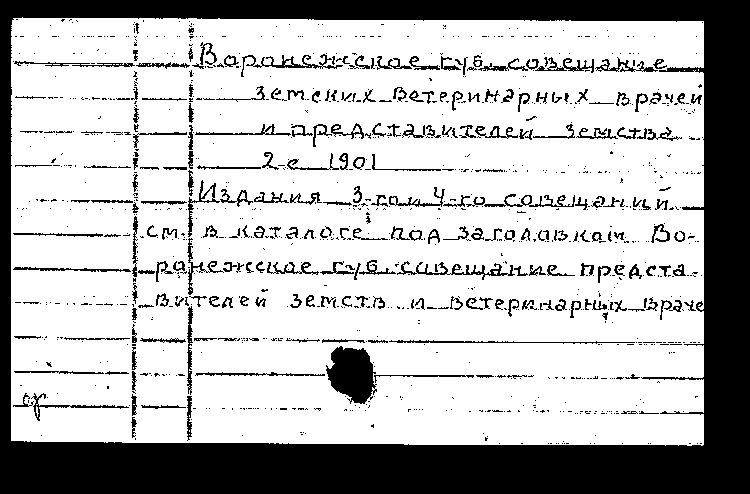 Воронежское губ. совещание
земских ветеринарных врачей
и представителей земства
2-е 1901
Издания 3-го и 4-го совещаний
см. в каталоге под заголовком Во-
ронежское губ. совещание предста-
вителей земств и ветеринарных враче